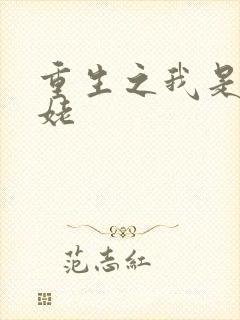 重生之我是
姥
范志红